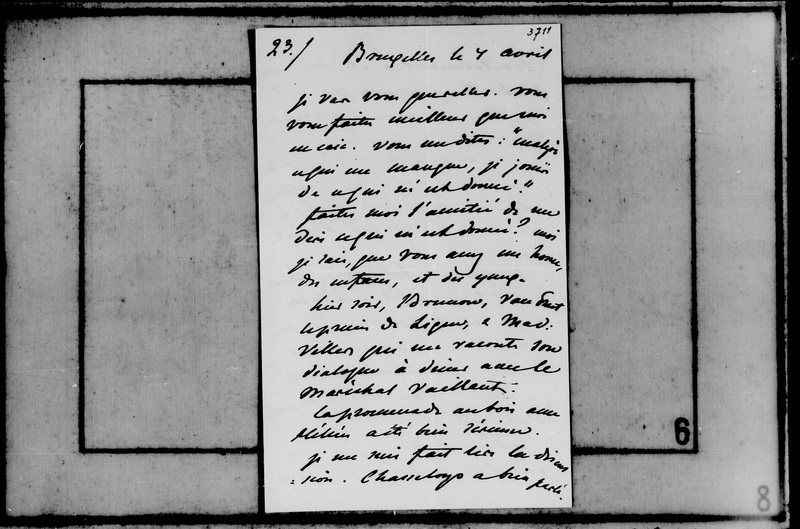 3711
23./ Bruxelles le 7 avril
je vais vous quereller. vous
vous faites meilleure que moi
vous me dites : "malgré
ce qui me manque, je jouis
de ce qui m'est donné."
faites moi l'amitié de me
dire ce qui m'est donné? moi
je sais, que vous avez un home,
des enfans, et des yeux.
hier soir, Brunnow, Van Praet
le prince de Ligne, &
Villers qui me raconte son
dialogue à diner avec le
Maréchal Vaillant.
la promenade au bois avec
Hélène a été bien sérieuse.
je me suis fait lire la discus
=sion. Chasseloup a bien parlé.
6
8